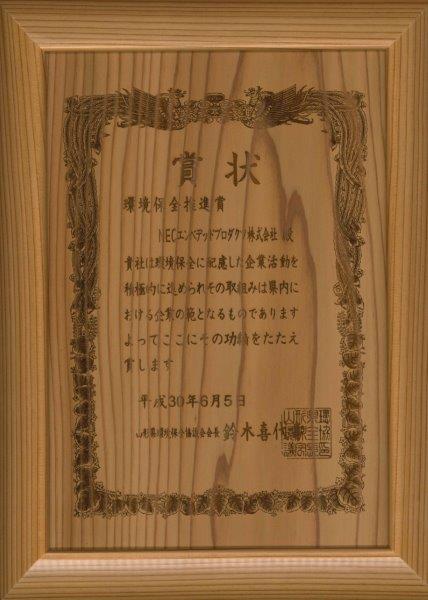 賞状
環境保全推進賞
NECエンベデッドプロダクツ株式会社 殿
貴社は環境保全に配慮した企業活動を
積極的に進められその取組みは県内に
おける企業の範となるものであります
よってここにその功績をたたえ
賞します
平成30年6月5日
山形県環境保全協議会会長 鈴木喜代